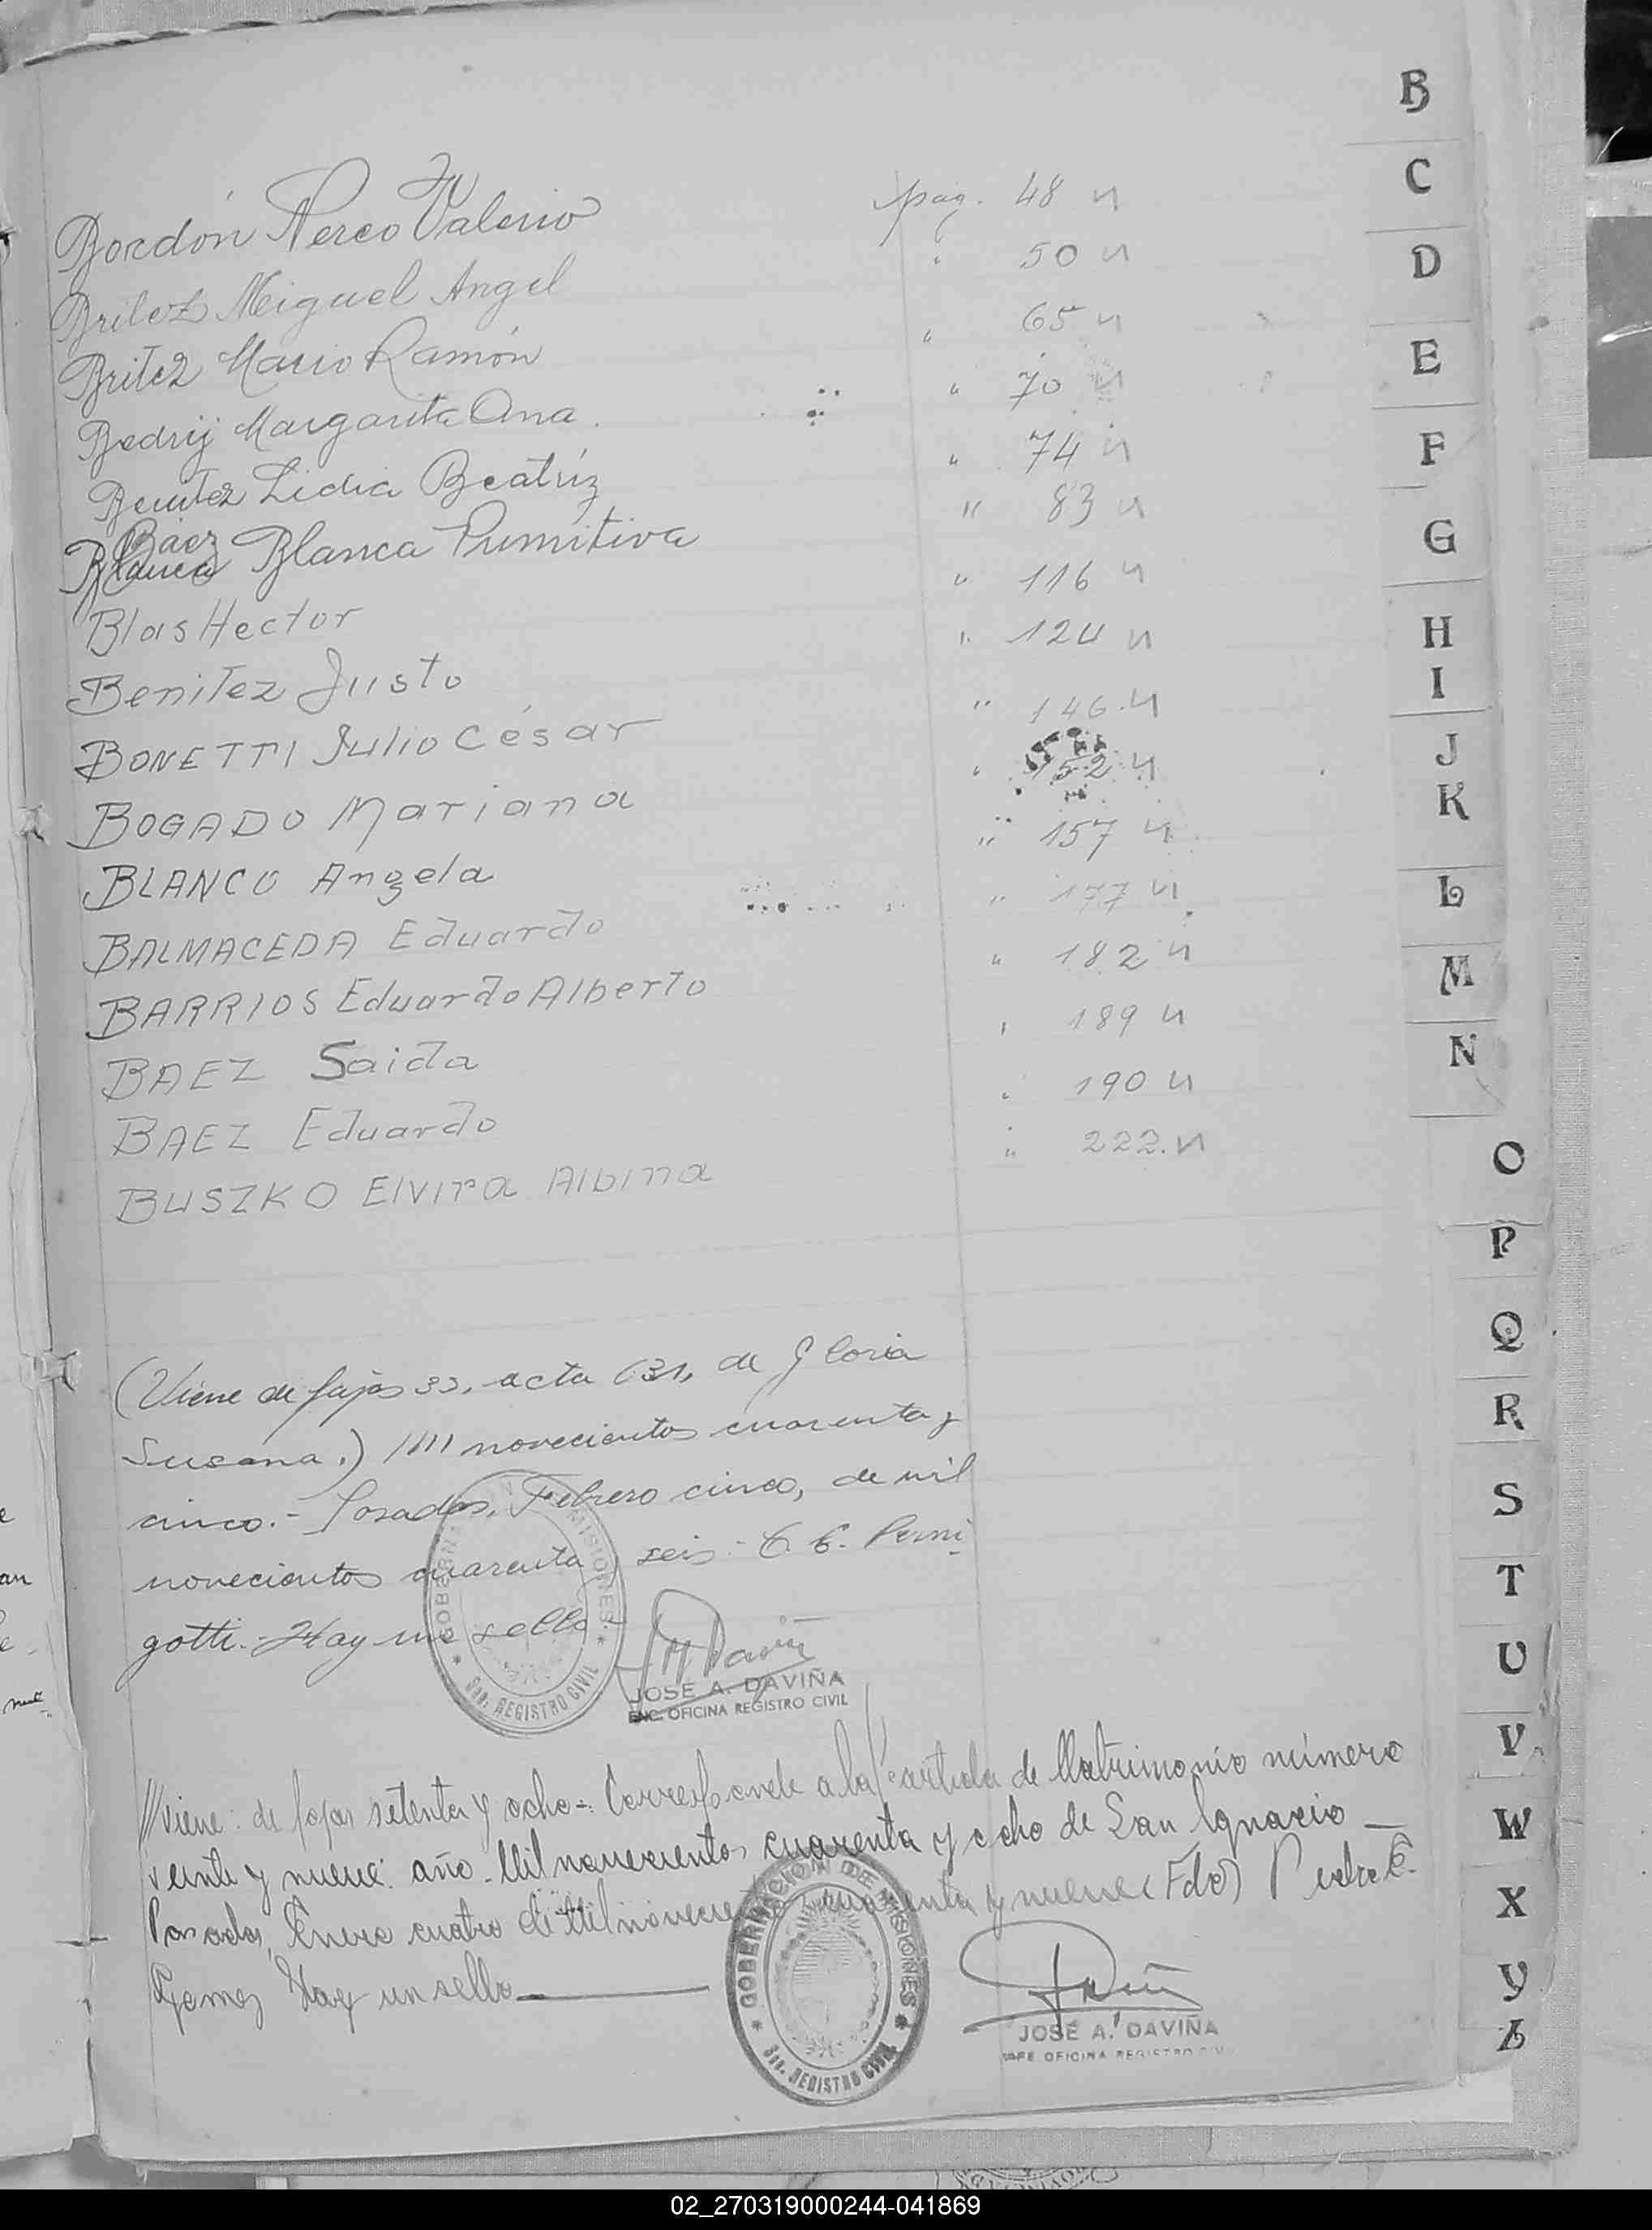 Bordón Nereo Valerio pag. 48 n
Britez Miguel Angel " 50 n
Britez Mario Ramón " 65 n
Bedrij Margarita Ana. " 70 n
Benitez Lidia Beatríz " 74 n
Báez
Blanca Blanca Primitiva " 83 n
Blas Hector " 116 n
Benitez Justo " 124 n
BONETTI Julio César " 146. n
BOGADO Mariana " 152 n
BLANCO Angela " 157 n
BALMACEDA Eduardo " 177 n
BARRIOS Eduardo Alberto " 182 n
BAEZ Saida " 189 n
BAEZ Eduardo " 190 n
BUSZKO Elvira Albina " 222. n
(Viene de fojas 33, acta 631, de Gloria
Susana.) //// novecientos cuarenta y
cinco.- Posadas, Febrero cinco, de mil
novecientos cuarenta y seis.- C. E. Perni-
gotti.- Hay un sello
GOBERN MISIONES
Sec. REGISTRO CIVIL
JOSE A. DAVIÑA
ENC. OFICINA REGISTRO CIVIL
///Viene: de fojas setenta y ocho-. Corresponde a la Partida de Matrimonio número
veinte y nueve. año. Mil novecientos cuarenta y ocho de San Ignacio —
Posadas, Enero cuatro de Mil novecientos cuarenta y nueve (Fdo) Pedro E.
Gomez Hay un sello
GOBERNACION DE MISIONES
Sec. REGISTRO CIVIL
JOSÉ A. DAVIÑA
JEFE OFICINA REGISTRO CIVIL
B
C
D
E
F
G
H
I
J
K
L
M
N
O
P
Q
R
S
T
U
V
W
X
Y
Z
02_270319000244-041869